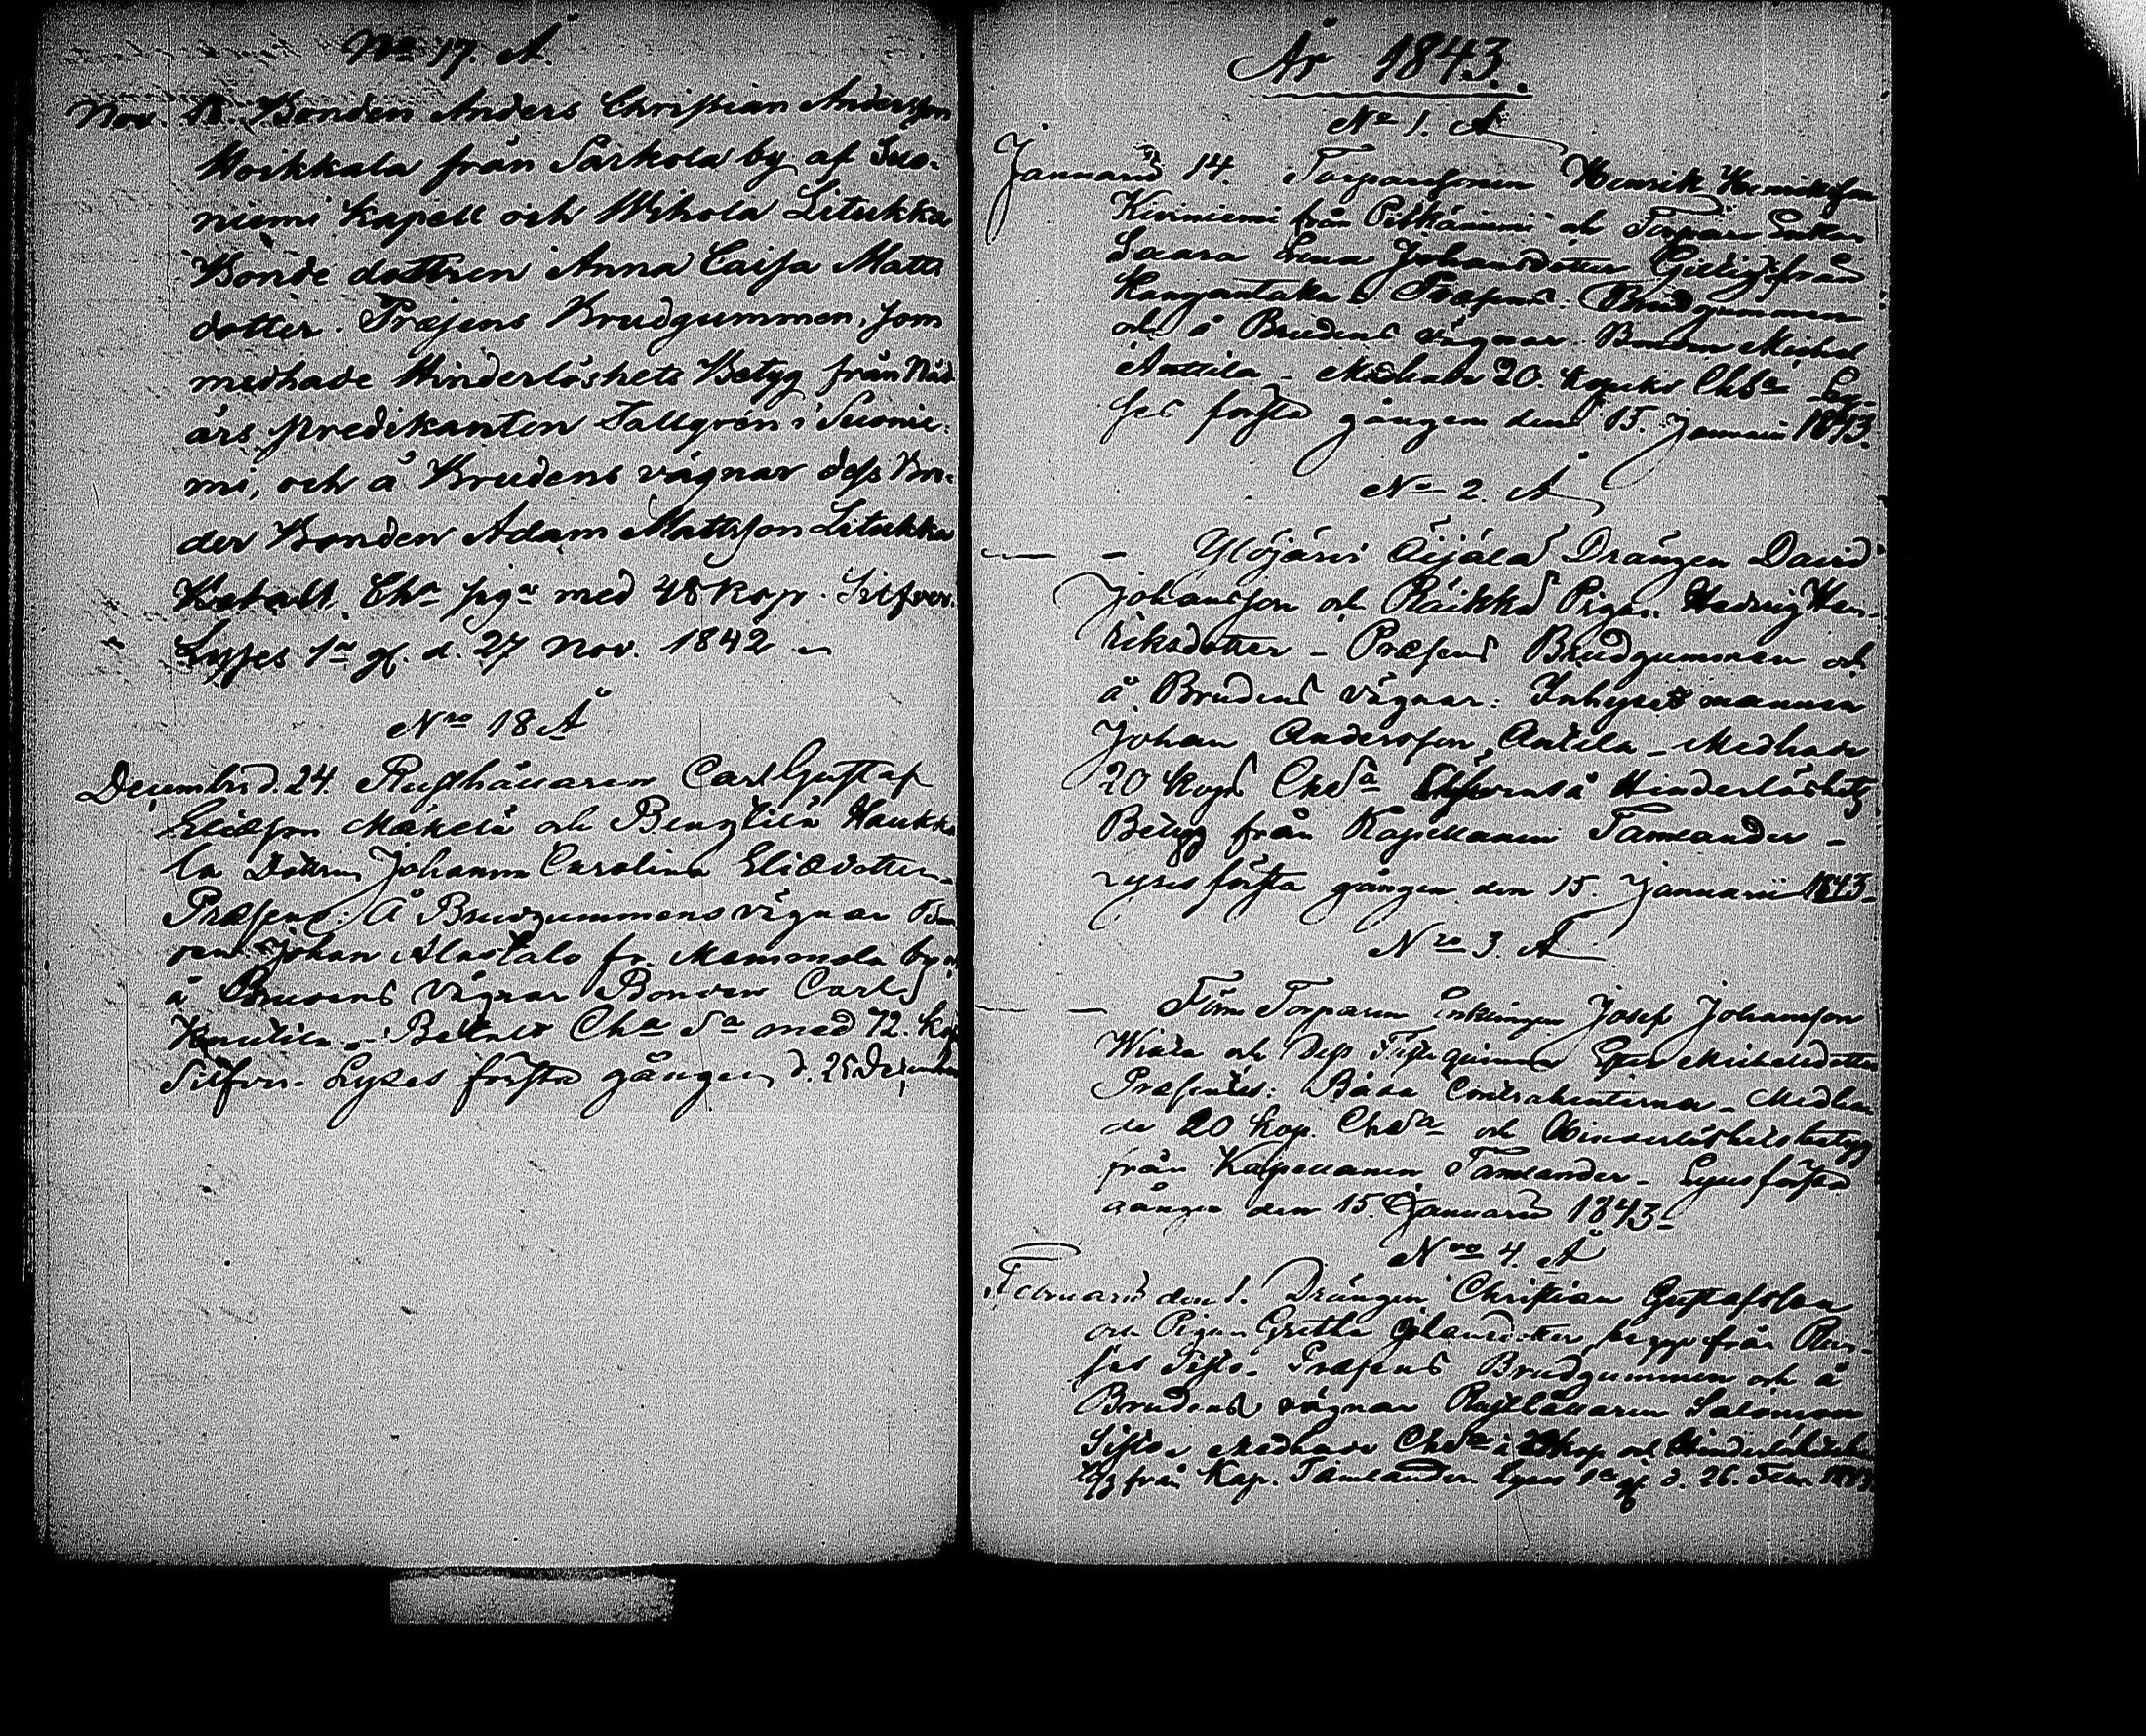 No 17. Å
Nov. 18. Bonden Anders Christian Andersson
Hoikkala från Sarkola by af Suo-
niemi Kapell och Wihola Litukka
Bonde dottren Anna Caisa Matts
dotter. Præsens Brudgummen, som
medhade Hinderlöshets Betyg från Nåd
års predikanten Tallgren i Suonie-
mi, och å Brudens vägnar dess Bro-
der Bonden Adam Mattsson Litukka
Betalt Cha sig. med 48 kop. Silfver.
Lyses 1a g. d. 27 Nov. 1842
Nro 18 Å
Decembris d. 24. Rusthållaren Carl Gustaf
Eliæson Mäkelä och Bengtilä Haukka
la Dottren Johanna Carolina Eliædotter.
Præsens: Å Brudgummens vägnar
Johan Alastalo fr. Mammola by
å Brudens vägnar Bonden Carl
Knutila. Betalt Cha Sa med 72. kop
Silfver. Lyses första gången d. 25 December
År 1843.
No 1. Å
Januarii 14. Torparsonen Henrik Henriksson
Kiviniemi från Pitkäniemi och Torpare Enkan
Saara Lena Johansdotter från
Kangantaka. Præsens: Brudgummen
och å Brudens vägnar Bonden Michel
Anttila - Medhade 20. kopek Chsa Ly-
ses första gången den 15. Januarii 1843.
No 2. Å
— - Ylöjärvi Äijälä Drängen David
Johansson och Räikkä Pigan Hedvig Hen-
riksdotter - Præsens Brudgummen och
å Brudens vägnar: Inhyses mannen
Johan Andersson Antila - Medhade
20 kop Chsa Hinderlöshets
Betyg från Kapellanen Tamlander -
Lyses första gången den 15. Januarii 1843.
Nro 3. Å
— — Förre Torparen Enklingen Josef Johansson
och Dess Fästeqvinna Michelsdotter
Præsentes: Båda Contrahenterna - Medha
de 20 kop. Chsa och Hinderlöshetsbetyg
från Kapellanen Tamlander - Lyses första
gången den 15. Januarii 1843 -
Nro 4. Å
Februarii den 1. Drängen Christian Gustafsson
och Pigan Greta Johansdotter, begge från
Sisto. Præsens Brudgummen och å
Brudens vägnar Rusthållaren Salomon
Sisto. Medhade Chsa kop och
från Kap. Tamlander. Lyses 1a g. d. 26. Febr. 1843